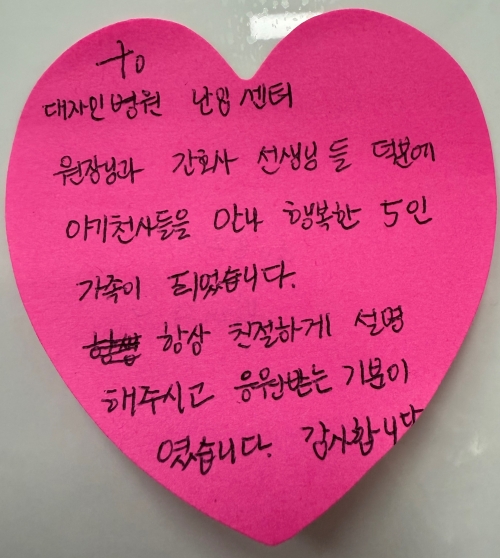 to
대자인병원 난임센터
원장님과 간호사 선생님들 덕분에
아기천사들을 만나 행복한 5인
가족이 되었습니다.
항상 친절하게 설명
해주시고 응원받는 기분이
였습니다. 감사합니다